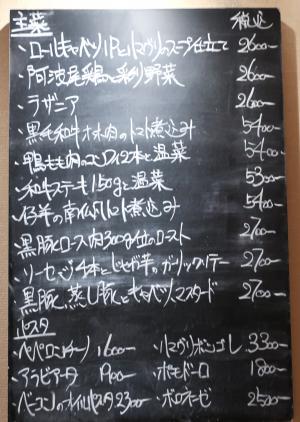 主菜 税込
・ロールキャベツ1Pとトマトのスープ仕立て 2600-
・阿波尾鶏と彩り野菜 2600-
・ラザニア 2600-
・黒毛和牛 肉のトマト煮込み 5400-
・鴨もも肉のコンフィ2本と温菜 5400-
・和牛ステーキ150gと温菜 5300-
・仔羊の南仏風トマト煮込み 5400-
・黒豚ロース肉300g位のロースト 2700-
・ソーセージ4本とじゃが芋のガーリックソテー 2700-
・黒豚 蒸し豚とキャベツ マスタード 2700-
パスタ
・ペペロンチーノ 1600- ・ボンゴレ 3300-
・アラビアータ 1900- ・ポモドーロ 1800-
・ベーコンのオイルパスタ 2300- ・ボロネーゼ 2500-